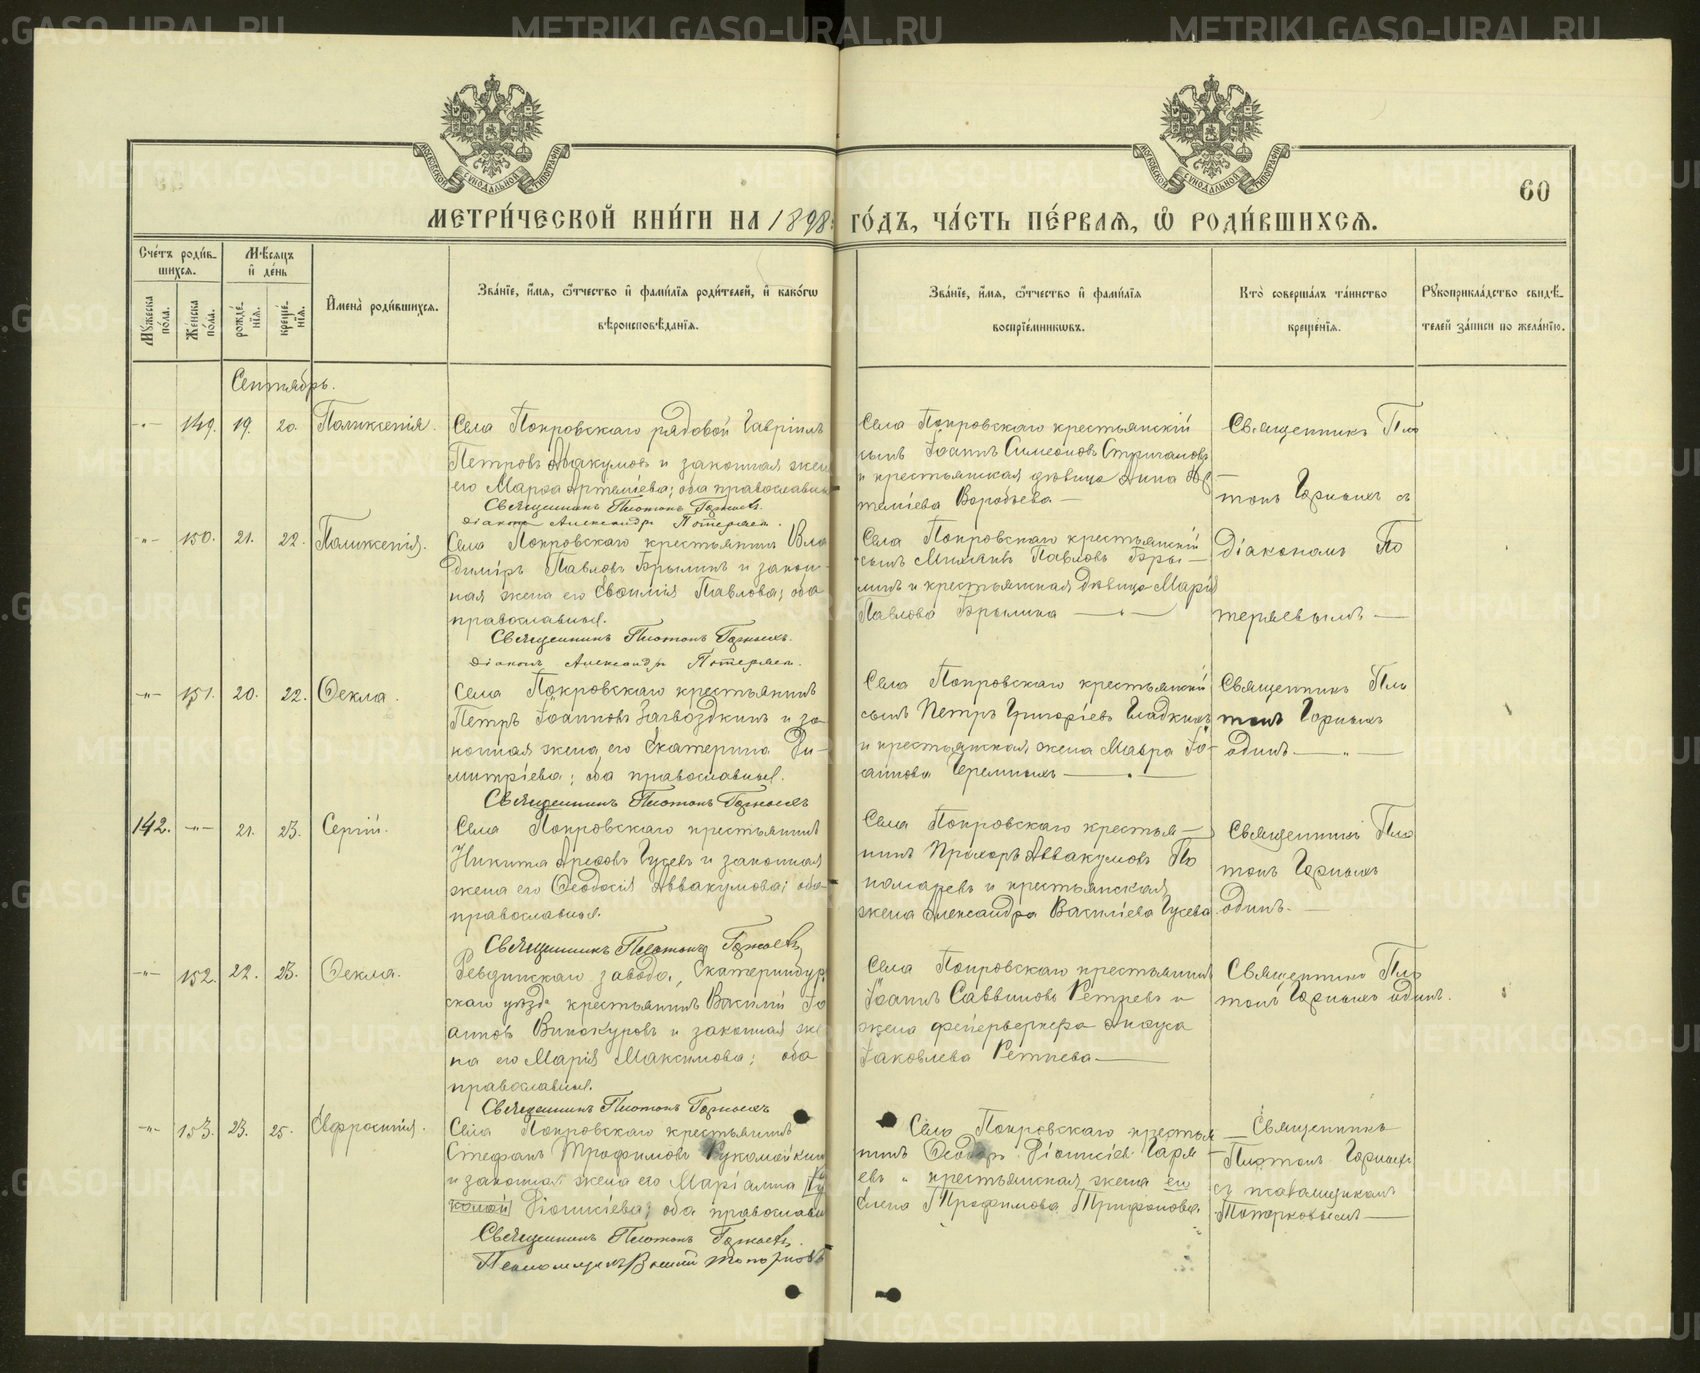 METRIKI.GASO-URAL.RU
МОСКОВСКОЙ СѴНОДАЛЬНОЙ ТИПОГРАФІИ
МОСКОВСКОЙ СѴНОДАЛЬНОЙ ТИПОГРАФІИ
60
МЕТРИ́ЧЕСКОЙ КНИ́ГИ НА 1898 ГО́ДЪ, ЧА́СТЬ ПЕ́РВАЯ, Ѽ РОДИ́ВШИХСЯ.
Сче́тъ роди́в-
шихся.
Мѣсяцъ
и҆ де́нь
Мꙋжеска по́ла.
Же́нска по́ла.
рожде́нїя.
креще́нїя.
И҆мена̀ роди́вшихся.
Зва́нїе, и҆́мя, ѻ҆́тчество и҆ фами́лїя роди́телей, и҆ како́гѡ
вѣроисповѣ́данїя.
Зва́нїе, и҆́мя, ѻ҆́тчество и҆ фами́лїя
воспрїе́мникѡвъ.
Кто̀ соверша́лъ та́инство
креще́нїя.
Рꙋкоприкла́дство свидѣ́-
телей за́писи по жела́нїю.
Сентябрь.
-"- 149. 19. 20. Поликсенія.
Села Покровскаго рядовой Гавріилъ
Петровъ Авакумовъ и законная жен
его Марѳа Артеміева; оба православны
Священникъ Платонъ Горныхъ.
Діаконъ Александръ Потеряев.
Села Покровскаго крестьянскій
сынъ Іоаннъ Симеоновъ Стригановъ
и крестьянская дѣвица Анна Ар
теміева Воробьева —
Священникъ Пла
тонъ Горныхъ съ
-"- 150. 21. 22. Поликсенія.
Села Покровскаго крестьянинъ Вла
диміръ Павловъ Брылинъ и закон-
ная жена его Павлова; оба
православныя.
Священникъ Платонъ Горныхъ.
Діаконъ Александръ Потеряев.
Села Покровскаго крестьянскій
сынъ Павловъ Бры-
линъ и крестьянская дѣвица Марія
Павлова Брылина —"—
діакономъ По
теряевымъ —
-"- 151. 20. 22. Ѳекла.
Села Покровскаго крестьянинъ
Петръ Іоанновъ Загвоздкинъ и за
конная жена его Екатерина Ди-
митріева; оба православныя.
Священникъ Платонъ Горныхъ
Села Покровскаго крестьянскій
сынъ Петръ Григоріевъ Гладкихъ
и крестьянская жена Мавра Іо-
аннова Черемныхъ —
Священникъ Пла
тонъ Горныхъ
одинъ —"—
142. -"- 21. 23. Сергій.
Села Покровскаго крестьянинъ
Никита Арефовъ Гусевъ и законная
жена его Ѳеодосія Аввакумова; оба
православныя.
Священникъ Платонъ Горныхъ
Села Покровскаго крестья-
нинъ Прохоръ Аввакумовъ По
номаревъ и крестьянская
жена Александра Василіева Гусева
Священникъ Пла
тонъ Горныхъ
одинъ. —
-"- 152. 22. 23. Ѳекла.
Ревдинскаго завода, Екатеринбург
скаго уѣзда крестьянинъ Василій Іо
анновъ Винокуровъ и законная же
на его Марія Максимова; оба
православныя.
Священникъ Платонъ Горныхъ
Села Покровскаго крестьянинъ
Іоаннъ Саввиновъ Ретневъ и
жена фейерверкера
Іаковлева Ретнева —
Священникъ Пла
тонъ Горныхъ одинъ.
-"- 153. 23. 25. Евфросинія.
Села Покровскаго крестьянинъ
Стефанъ Трофимовъ Рукомойкин
и законная жена его Маріамна
Діонисіева; оба православн
Священникъ Платонъ Горныхъ.
Псаломщикъ Василій Топорковъ
Села Покровскаго крестья-
нинъ Ѳеодоръ Діонисіев Горя-
евъ и крестьянская жена его
Елена Трофимова Трифонова
Священникъ
Платонъ Горныхъ
съ псаломщикомъ
Топорковымъ —